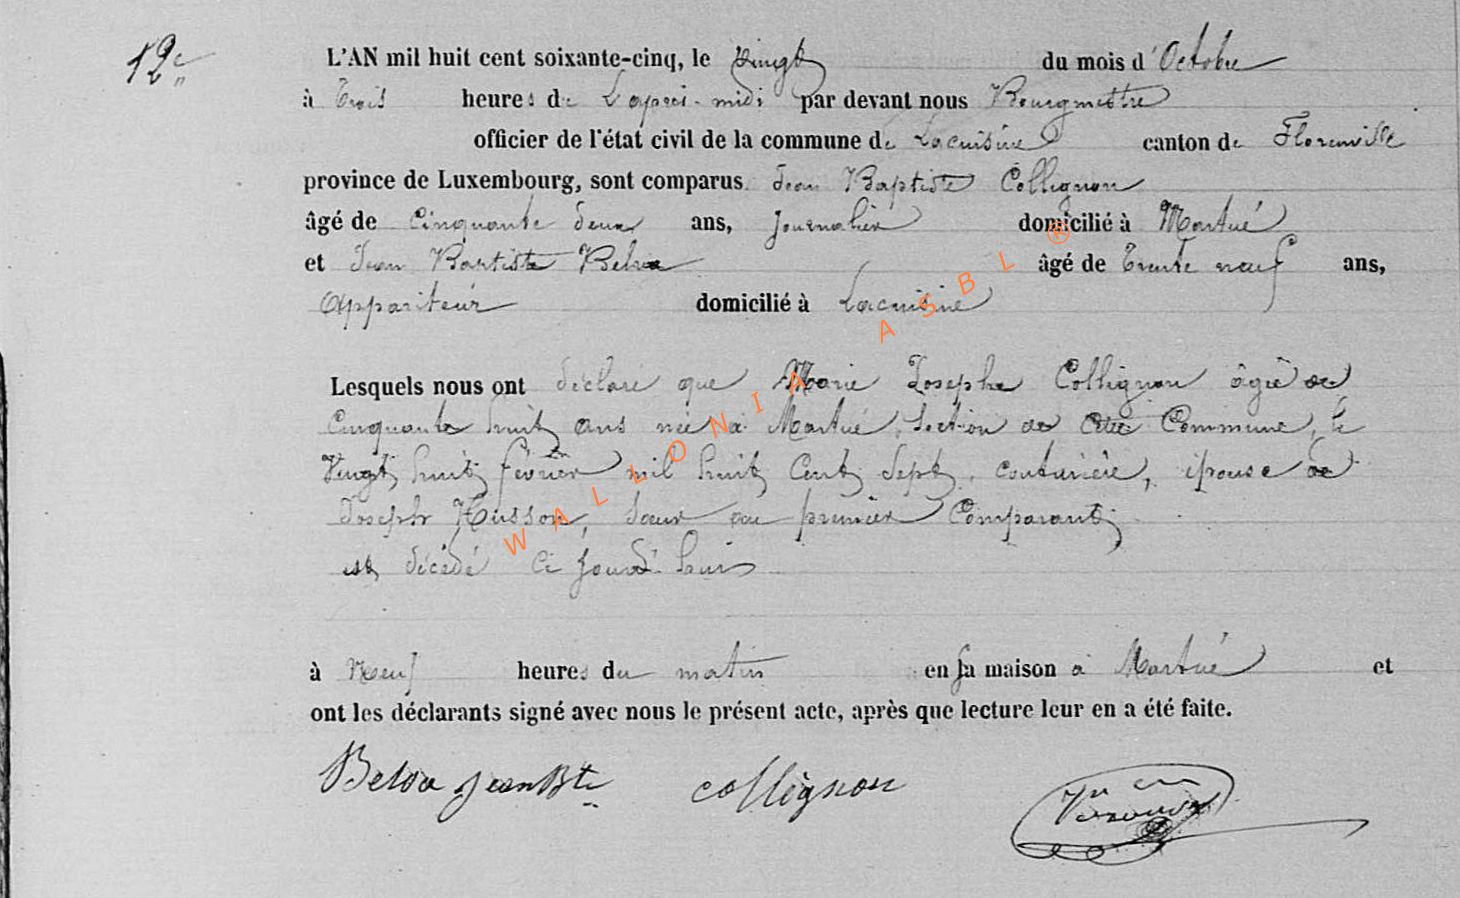 12e
L'AN mil huit cent soixante-cinq, le vingt du mois d'Octobre
à Trois heures de L'après-midi par devant nous Bourgmestre
officier de l'état civil de la commune de Lacuisine canton de Florenville
province de Luxembourg, sont comparus Jean Baptiste Collignon
âgé de Cinquante deux ans, Journalier domicilié à Martué
et Jean Baptiste Belva âgé de Trente neuf ans,
Appariteur domicilié à Lacuisine
Lesquels nous ont déclaré que Marie Josephe Collignon âgée de
Cinquante huit ans née à Martué, Section de cette Commune, le
Vingt huit février mil huit Cent Sept, couturière, épouse de
Joseph Husson, Sœur du premier Comparant,
est décédé Ce Jourd'hui
à Neuf heures du matin en sa maison à Martué et
ont les déclarants signé avec nous le présent acte, après que lecture leur en a été faite.
Belva Jean Bte collignon
WALLONIA ASBL ®